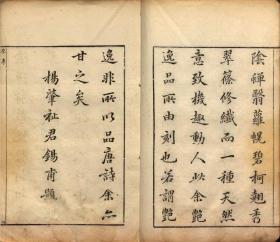 陰翳蘿幌碧柯翹秀
翠篠修纖而一種天然
意致機趣動人此余艷
逸品所由刻也若謂艷
逸非所以品唐詩余亦
甘之矣
楊肇祉君錫甫題